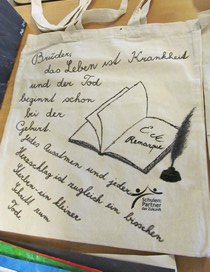 Brüder,
das Leben ist Krankheit
und der Tod
beginnt schon
bei der
Geburt.
Jedes Aufatmen und jeder
Herzschlag ist zugleich ein bisschen
Sterben - ein kleiner
Schritt zum
Tod.
E.M.
Remarque
Schulen:
Partner
der Zukunft